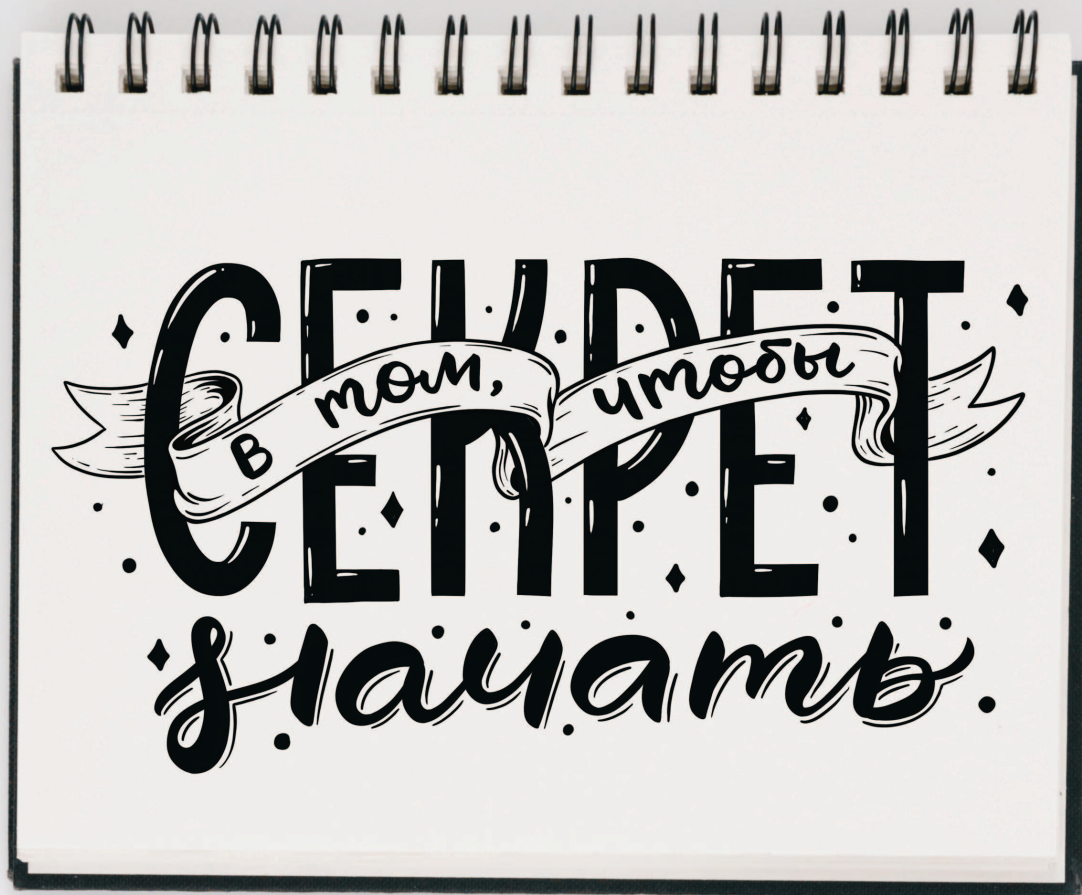 СЕКРЕТ
в том, чтобы
начать